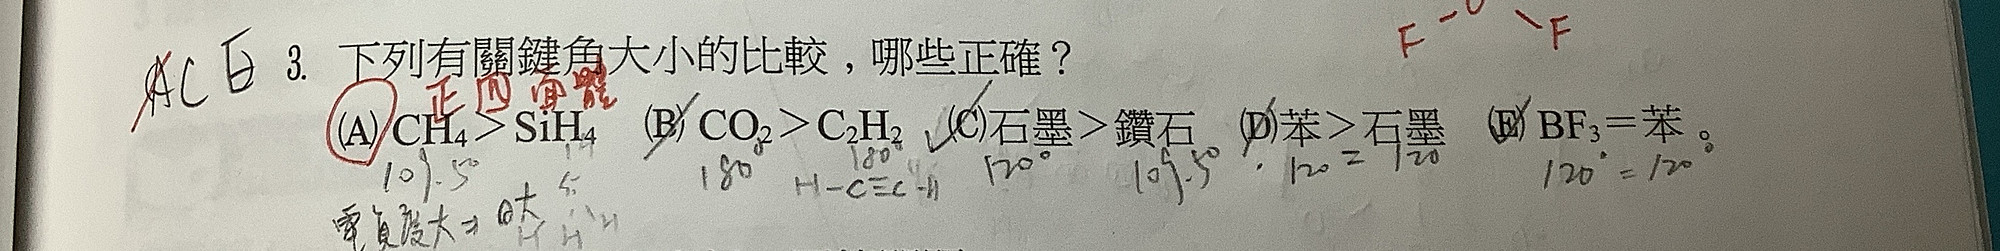 F F
ACE 3. 下列有關鍵角大小的比較，哪些正確？
正四面體
(A) CH₄＞SiH₄ (B) CO₂＞C₂H₂ (C)石墨＞鑽石 (D)苯＞石墨 (E) BF₃＝苯。
109.5° 180° 180° 120° 109.5° 120 = 120 120° = 120°
H-C≡C-H
電負度大⇒θ大
H H H